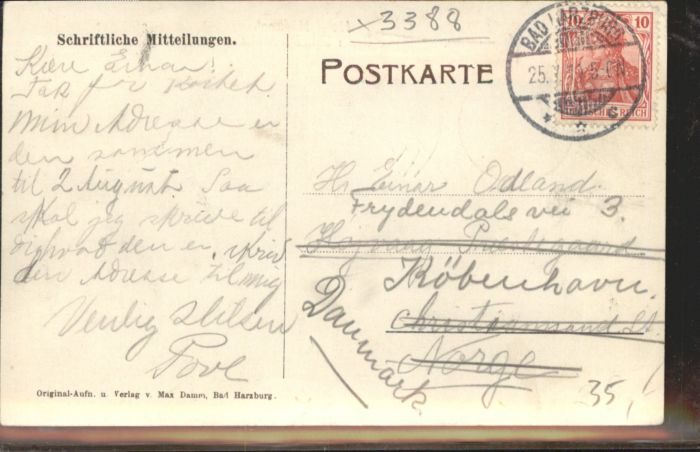 x3388
Schriftliche Mitteilungen.
POSTKARTE
BAD HARZBURG
25.
10
REICH
Kære Einar!
Tak for Kortet.
Min Adresse er
den sammen
til 2 August. Saa
skal jeg skrive til
dig hvad den er, skriv
din Adresse til mig
Venlig Hilsen
Povl
Hr Einar Odland.
Frydendals vei 3.
Præstegaard
København.
Christianssand St.
Norge
Danmark
35,
Original-Aufn. u. Verlag v. Max Damm, Bad Harzburg.